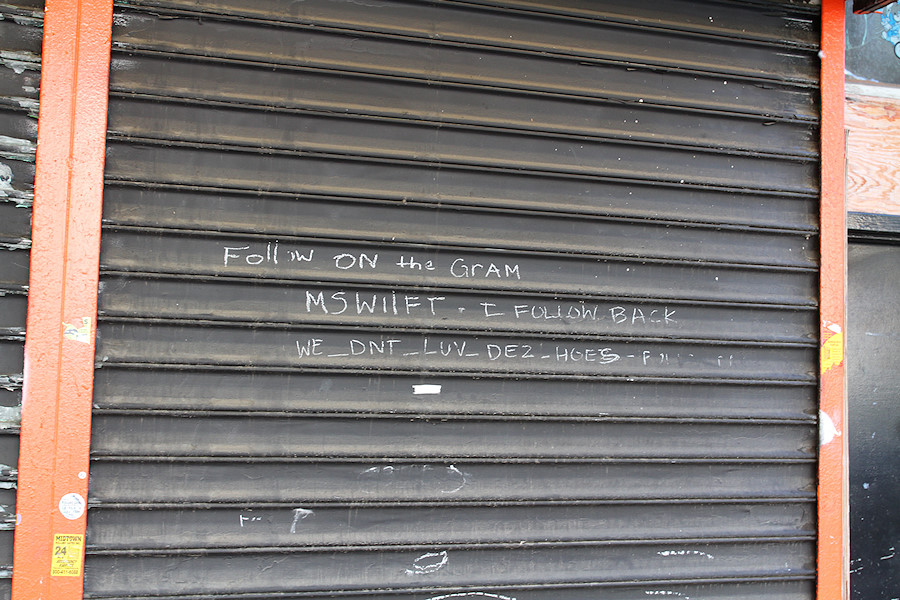 Follow ON the GrAM
MSWIlFT . I FOLLOW BACK
WE_DNT_LUV_DEZ_HOES
MIDTOWN
24